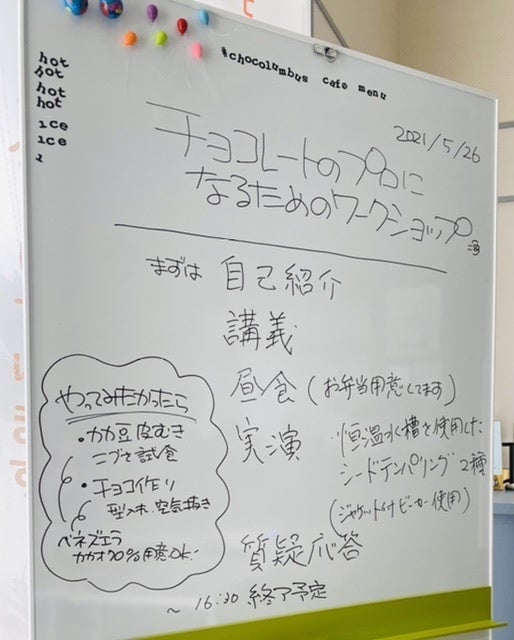 #chocolumbus cafe menu
hot
hot
hot
hot
ice
ice
2021/5/26
チョコレートのプロに
なるためのワークショップ
まずは 自己紹介
講義
昼食(お弁当用意してます)
実演 恒温水槽を使用した
シードテンパリング2種
(ジャケット付ビーカー使用)
質疑応答
~16:30 終了予定
やってみたかったら
・カカ豆皮むき
試食
・チョコ作り
型入れ、空気抜き
ベネズエラ
カカオ70%用意OK!